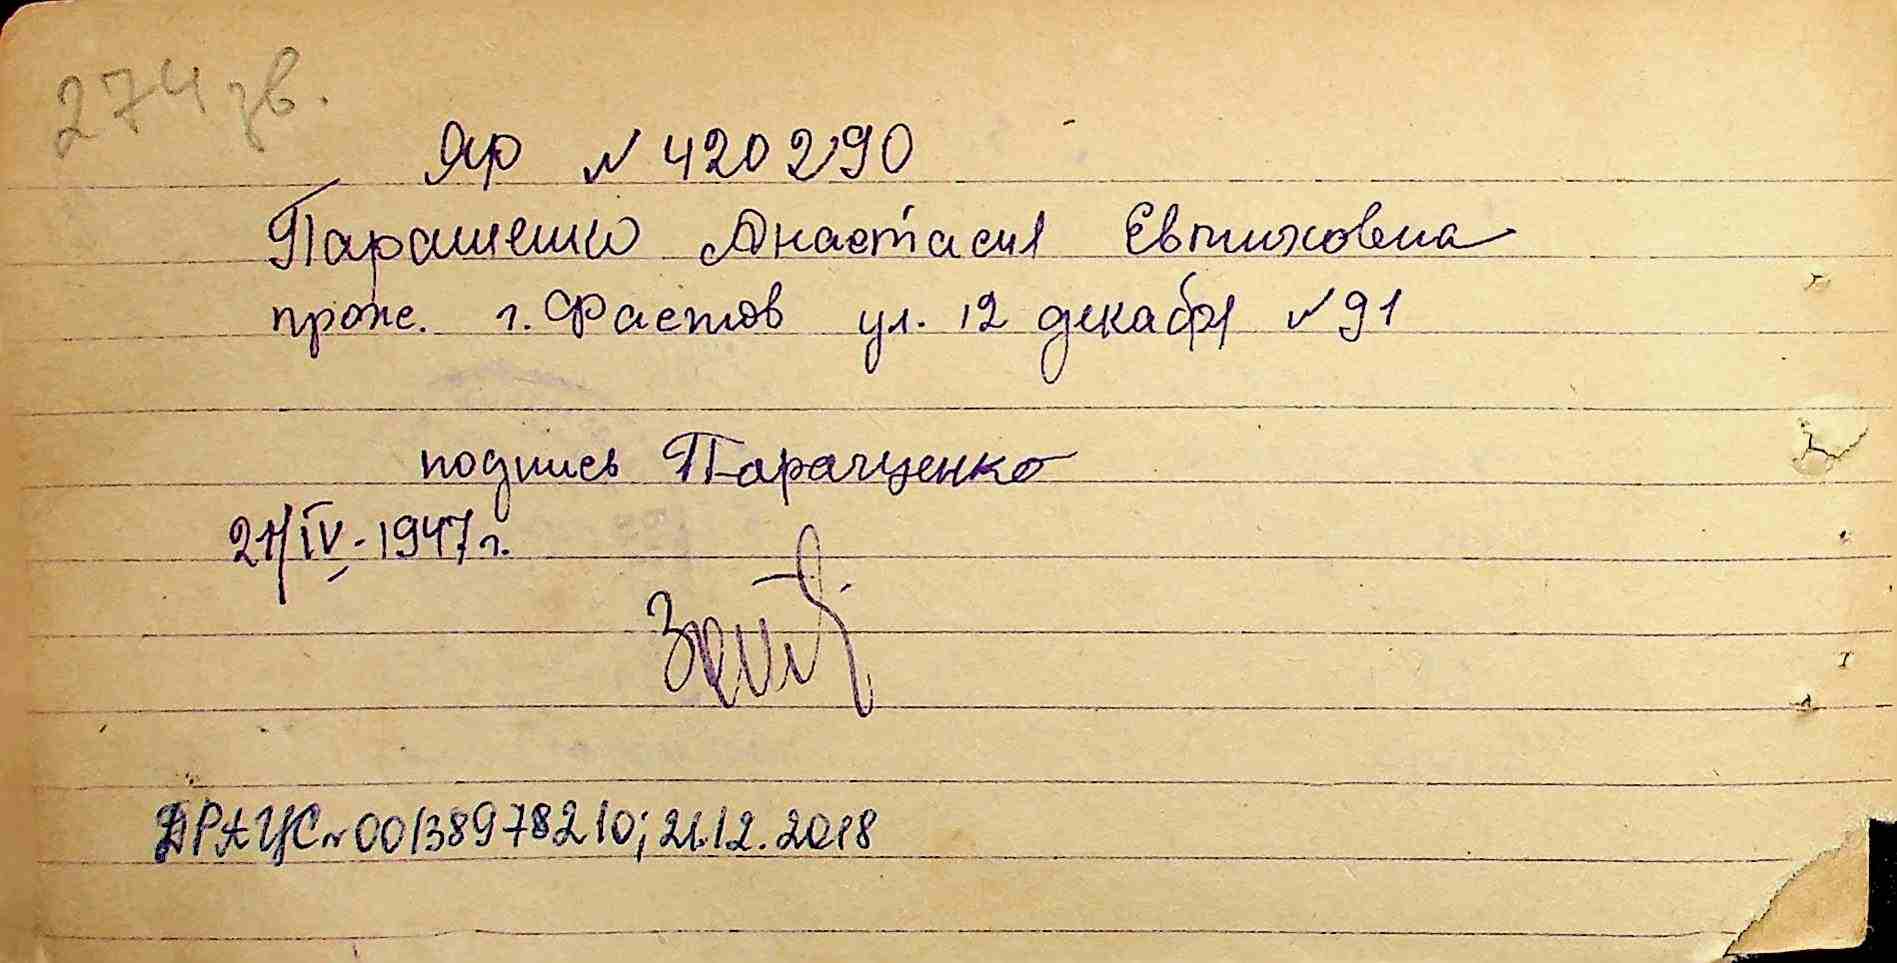 274 зв.
ЯР № 420290
Паращенко Анастасия Евтиховна
прож. г. Фастов ул. 12 декабря № 91
подпись Паращенко
21/IV-1947 г.
ДРАЦС № 00138978210; 21.12.2018